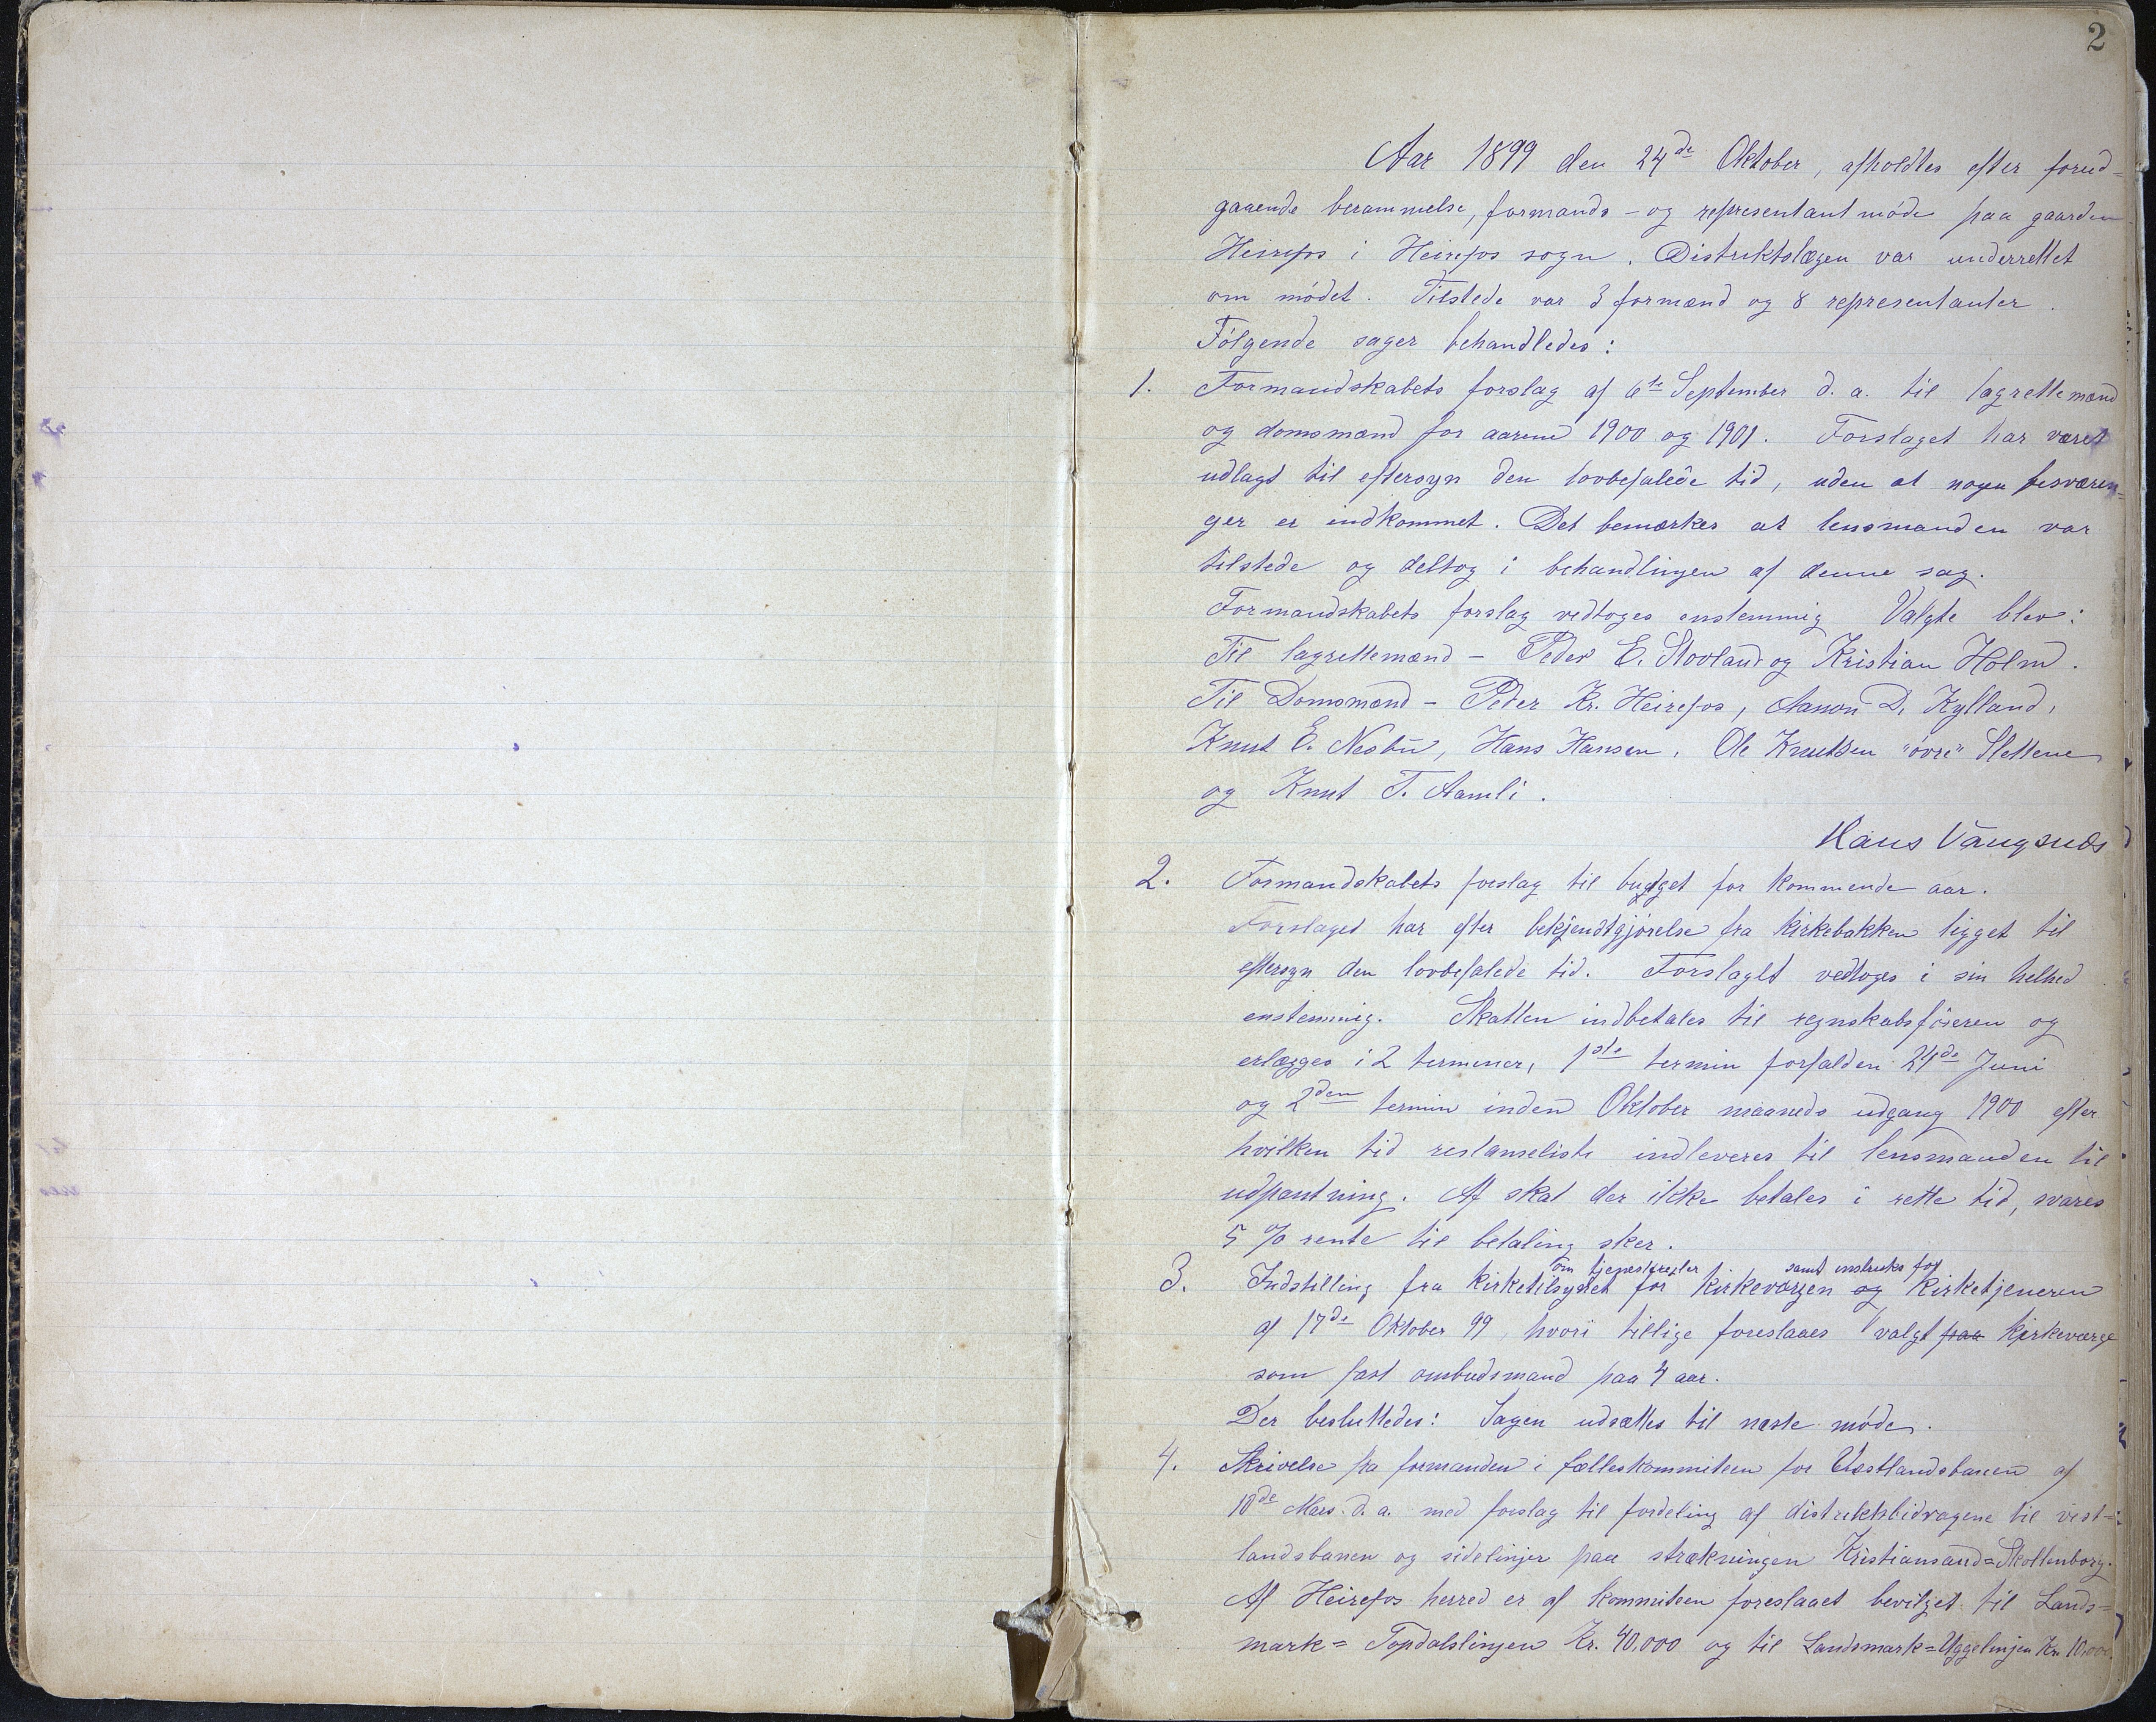 2
Aar 1899 den 24de Oktober, afholdtes efter forud=
gaaende berammelse, formands- og representantmöde paa gaarden
Heirefos i Heirefos sogn. Distriktslægen var underrettet
om mödet. Tilstede var 3 formænd og 8 representanter.
Fölgende sager behandledes:
1. Formandskabets forslag af 6te September d. a. til lagrettemænd
og domsmænd for aarene 1900 og 1901. Forslaget har været
udlagt til eftersyn den lovbefalede tid, uden at nogen besværin=
ger er indkommet. Det bemærkes at lensmanden var
tilstede og deltog i behandlingen af denne sag.
Formandskabets forslag vedtoges enstemmig Valgte blev:
Til lagrettemænd - Peder E. Stovland og Kristian Holm.
Til Domsmænd - Peder Kr. Heirefos, Aanon D. Kylland,
Knut E. Nesbü, Hans Hansen, Ole Knutsen "övre" Slettene
og Knut T. Aamli.
Hans Vangsnes
2. Formandskabets forslag til budget for kommende aar.
Forslaget har efter bekjendtgjörelse fra kirkebakken ligget til
eftersyn den lovbefalede tid. Forslaget vedtoges i sin helhed
enstemmig. Skatten indbetales til regnskabsföreren og
erlægges i 2 terminer, 1ste termin forfalden 24de Juni
og 2den termin inden Oktober maaneds udgang 1900 efter
hvilken tid restanseliste indleveres til lensmanden til
udpantning. Af skat der ikke betales i rette tid, svares
5 % rente til betaling sker.
om tjenesteregler samt instruks for
3. Indstilling fra kirketilsynet for kirkeværgen og kirketjeneren
af 17de Oktober 99, hvori tillige foreslaaes valgt paa kirkeværge
som fast ombudsmand paa 4 aar.
Der besluttedes: Sagen udsættes til næste möde.
4. Skrivelse fra formanden i fælleskommiteen for Vestlandsbanen af
18de Mars d. a. med forslag til fordeling af distriktsbidragene til vest=
landsbanen og sidelinjer paa strækningen Kristiansand=Skollenborg.
Af Heirefos herred er af kommiteen foreslaaet bevilget til Lands=
mark= Topdalslinjen Kr. 40.000 og til Landsmark=Uggelinjen Kr. 10.000.